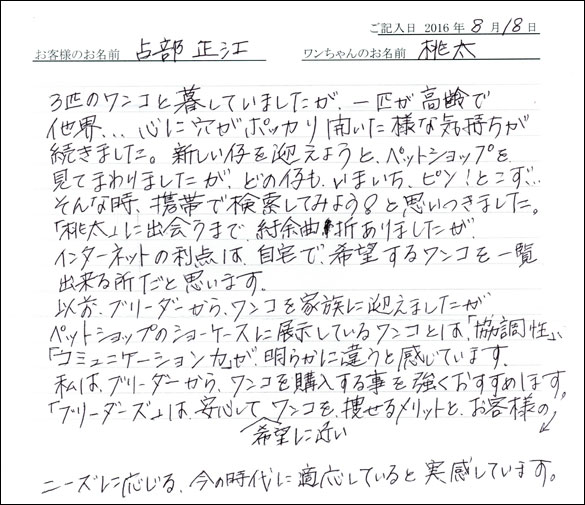 ご記入日 2016年8月18日
お客様のお名前 占部正江 ワンちゃんのお名前 桃太
3匹のワンコと暮していましたが、一匹が高齢で
他界… 心に穴がポッカリ開いた様な気持ちが
続きました。新しい仔を迎えようと、ペットショップを
見てまわりましたが、どの仔も、いまいち、ピン!とこず…
そんな時、携帯で検索してみよう!と思いつきました。
「桃太」に出会うまで、紆余曲折ありましたが、
インターネットの利点は、自宅で、希望するワンコを一覧
出来る所だと思います。
以前、ブリーダーから、ワンコを家族に迎えましたが
ペットショップのショーケースに展示しているワンコとは、「協調性」、
「コミュニケーション力」が、明らかに違うと感じています。
私は、ブリーダーから、ワンコを購入する事を強くおすすめします。
「ブリーダーズ」は、安心して、ワンコを、捜せるメリットと、お客様の
希望に近い
ニーズに応じる、今の時代に適応していると実感しています。